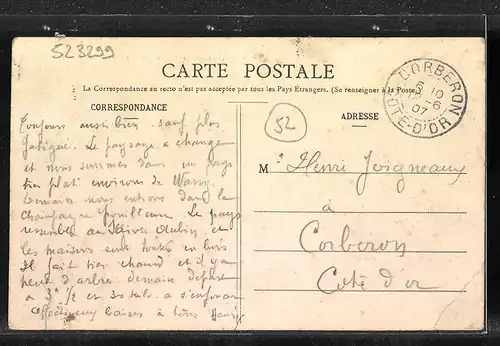 523299
CARTE POSTALE
La Correspondance au recto n'est pas acceptée par tous les Pays Étrangers. (Se renseigner à la Poste)
CORRESPONDANCE
ADRESSE
52
CORBERON
CÔTE-D'OR
07
Toujours aussi bien sauf plus
fatigué. Le paysage a changé
et nous sommes dans un pays
très plat environs de Wassy.
Demain nous entrons dans la
Champagne pouilleuse. Le pays
ressemble au et
les maisons sont toutes en bois
Il fait très chaud et il y a
peu d'arbre demain départ
à 3h ½ et
affectueux baisers à tous Henri
M Henri Joigneaux
à
Corberon
Côte d'or